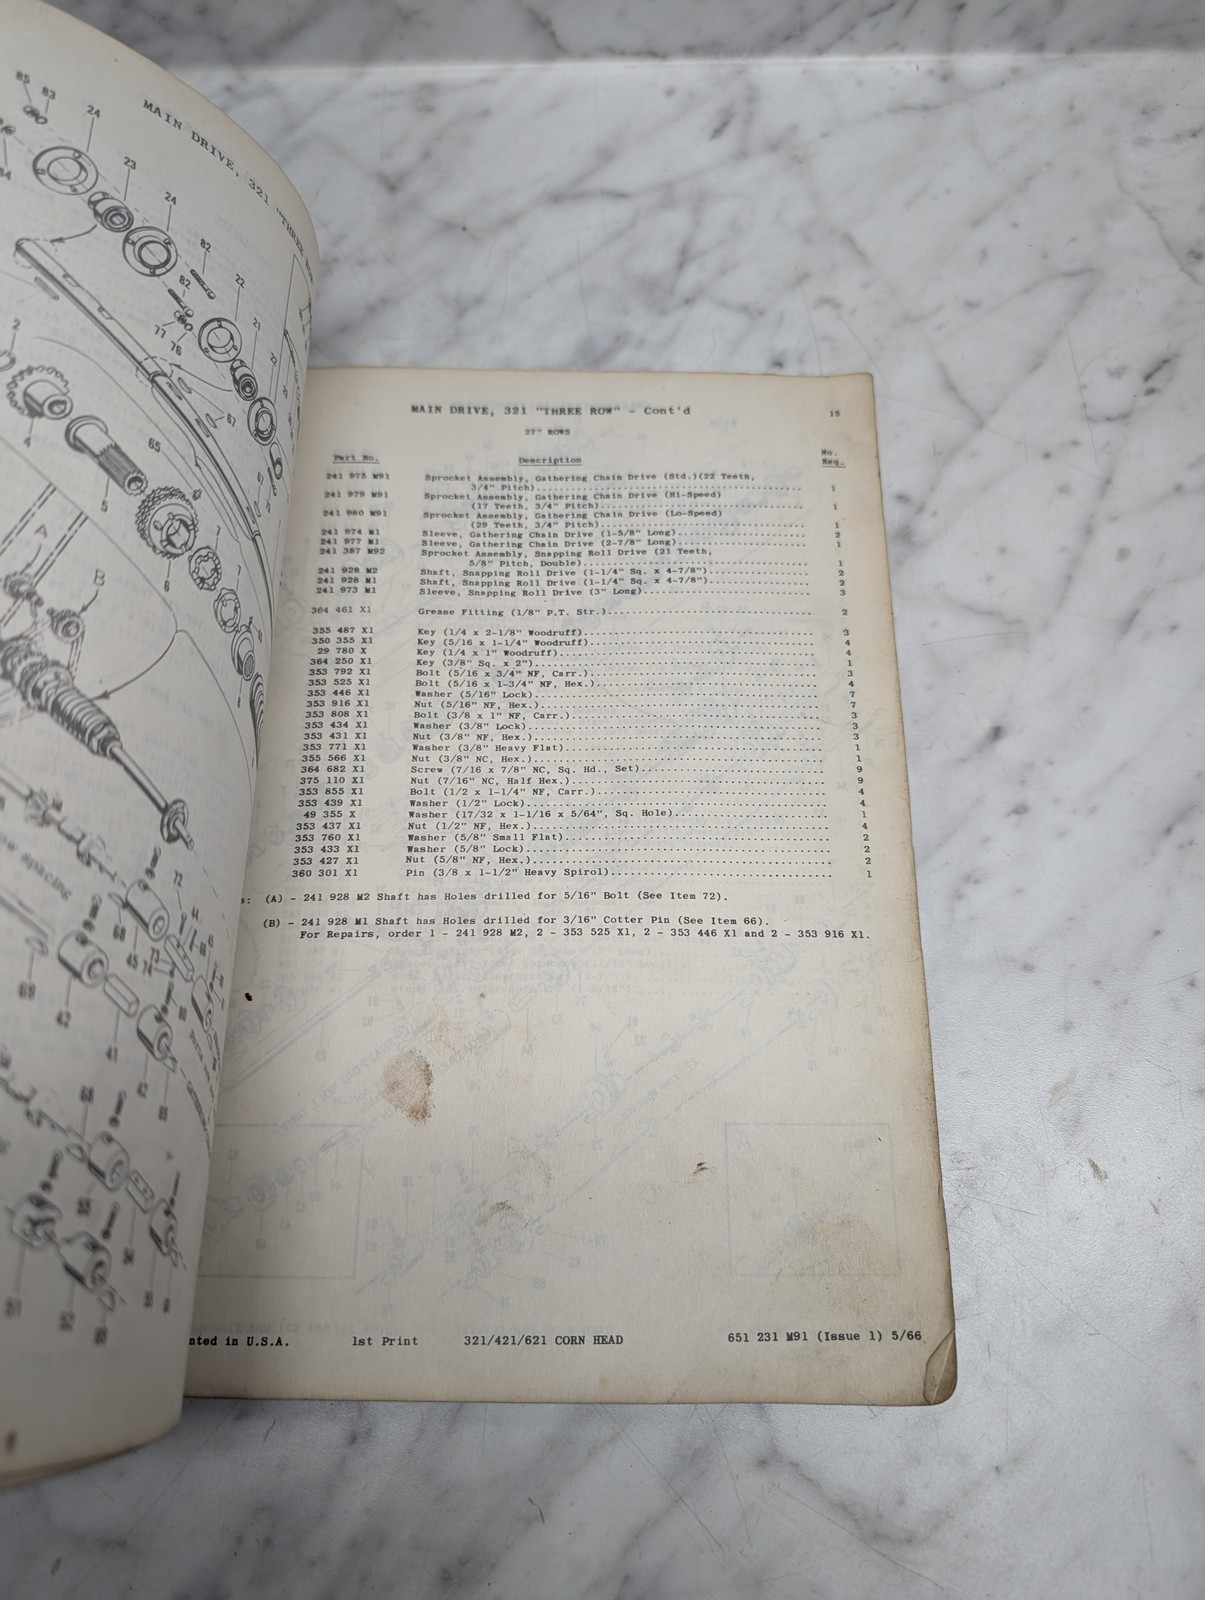 MAIN DRIVE, 321 "THREE ROW"
85
83
24
23
24
82
82
22
77
76
21
67
2
4
65
5
6
A
B
MAIN DRIVE, 321 "THREE ROW" - Cont'd
15
27" ROWS
Part No. Description No. Req.
241 975 M91 Sprocket Assembly, Gathering Chain Drive (Std.)(22 Teeth,
3/4" Pitch) 1
241 979 M91 Sprocket Assembly, Gathering Chain Drive (Hi-Speed)
(17 Teeth, 3/4" Pitch) 1
241 980 M91 Sprocket Assembly, Gathering Chain Drive (Lo-Speed)
(29 Teeth, 3/4" Pitch) 1
241 974 M1 Sleeve, Gathering Chain Drive (1-5/8" Long) 2
241 977 M1 Sleeve, Gathering Chain Drive (2-7/8" Long) 1
241 387 M92 Sprocket Assembly, Snapping Roll Drive (21 Teeth,
5/8" Pitch, Double) 1
241 928 M2 Shaft, Snapping Roll Drive (1-1/4" Sq. x 4-7/8") 2
241 928 M1 Shaft, Snapping Roll Drive (1-1/4" Sq. x 4-7/8") 2
241 973 M1 Sleeve, Snapping Roll Drive (3" Long) 3
364 461 X1 Grease Fitting (1/8" P.T. Str.) 2
355 487 X1 Key (1/4 x 2-1/8" Woodruff) 3
350 355 X1 Key (5/16 x 1-1/4" Woodruff) 4
29 780 X Key (1/4 x 1" Woodruff) 4
364 250 X1 Key (3/8" Sq. x 2") 1
353 792 X1 Bolt (5/16 x 3/4" NF, Carr.) 3
353 525 X1 Bolt (5/16 x 1-3/4" NF, Hex.) 4
353 446 X1 Washer (5/16" Lock) 7
353 916 X1 Nut (5/16" NF, Hex.) 7
353 808 X1 Bolt (3/8 x 1" NF, Carr.) 3
353 434 X1 Washer (3/8" Lock) 3
353 431 X1 Nut (3/8" NF, Hex.) 3
353 771 X1 Washer (3/8" Heavy Flat) 1
355 566 X1 Nut (3/8" NC, Hex.) 1
364 682 X1 Screw (7/16 x 7/8" NC, Sq. Hd., Set) 9
375 110 X1 Nut (7/16" NC, Half Hex.) 9
353 855 X1 Bolt (1/2 x 1-1/4" NF, Carr.) 4
353 439 X1 Washer (1/2" Lock) 4
49 355 X Washer (17/32 x 1-1/16 x 5/64", Sq. Hole) 1
353 437 X1 Nut (1/2" NF, Hex.) 4
353 760 X1 Washer (5/8" Small Flat) 2
353 433 X1 Washer (5/8" Lock) 2
353 427 X1 Nut (5/8" NF, Hex.) 2
360 301 X1 Pin (3/8 x 1-1/2" Heavy Spirol) 1
s: (A) - 241 928 M2 Shaft has Holes drilled for 5/16" Bolt (See Item 72).
(B) - 241 928 M1 Shaft has Holes drilled for 3/16" Cotter Pin (See Item 66).
For Repairs, order 1 - 241 928 M2, 2 - 353 525 X1, 2 - 353 446 X1 and 2 - 353 916 X1.
nted in U.S.A. 1st Print 321/421/621 CORN HEAD 651 231 M91 (Issue 1) 5/66